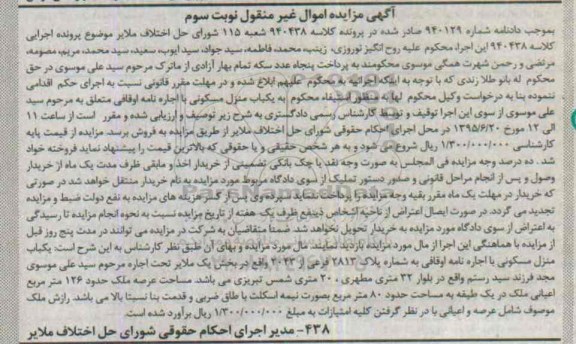 آگهی مزایده اموال غیر منقول نوبت سوم
بموجب دادنامه شماره ۹۴۰۱۲۹ صادر شده در پرونده کلاسه ۹۴۰۴۳۸ شعبه ۱۱۵ شورای حل اختلاف ملایر موضوع پرونده اجرایی
کلاسه ۹۴۰۴۳۸ این اجرا، محکوم علیه روح انگیز نوروزی، زینب، محمد، فاطمه، سید جواد، سید ایوب، سعید، سید محمد، مریم، معصومه،
مرتضی و رحمن شهرت همگی موسوی محکومند به پرداخت پنجاه عدد سکه تمام بهار آزادی از ماترک مرحوم سید علی موسوی در حق
محکوم له بانو طلا زندی که با توجه به اینکه اجرائیه به محکوم علیهم ابلاغ شده و در مهلت مقرر قانونی نسبت به اجرای حکم اقدامی
ننموده بنا به درخواست وکیل محکوم لها به منظور استیفاء محکوم به یکباب منزل مسکونی با اجاره نامه اوقافی متعلق به مرحوم سید
علی موسوی از سوی این اجرا توقیف و توسط کارشناس رسمی دادگستری به شرح زیر توصیف و ارزیابی شده و مقرر است از ساعت ۱۱
الی ۱۲ مورخ ۱۳۹۵/۶/۲۰ در محل اجرای احکام حقوقی شورای حل اختلاف ملایر از طریق مزایده به فروش برسد. مزایده از قیمت پایه
کارشناسی ۱/۳۰۰/۰۰۰/۰۰۰ ریال شروع می شود و به هر شخص حقیقی و یا حقوقی که بالاترین قیمت را پیشنهاد نماید فروخته خواهد
شد. ده درصد وجه مزایده فی المجلس به صورت وجه نقد یا چک بانکی تضمینی از خریدار اخذ و مابقی ظرف مدت یک ماه از خریدار
وصول و پس از انجام مراحل قانونی و صدور دستور تملیک از سوی دادگاه مربوط مورد مزایده به نام خریدار منتقل خواهد شد در صورتی
که خریدار در مهلت یک ماه مقرر بقیه وجه مزایده را پرداخت ننماید سپرده وی پس از کسر هزینه های مزایده به نفع دولت ضبط و مزایده
تجدید می گردد. در صورت ایصال اعتراض از ناحیه اشخاص ذینفع ظرف یک هفته از تاریخ مزایده نسبت به نحوه انجام مزایده تا رسیدگی
به اعتراض از سوی دادگاه مورد مزایده به خریدار تحویل نخواهد شد. ضمنا متقاضیان به شرکت در مزایده می توانند در مدت پنج روز قبل
از مزایده با هماهنگی این اجرا از مال مورد مزایده بازدید نمایند. مال مورد مزایده و بهای آن طبق نظر کارشناس به این شرح است: یکباب
منزل مسکونی با اجاره نامه اوقافی به شماره پلاک ۲۸۱۳ فرعی از ۳۰۳۳ واقع در بخش یک ملایر تحت اجاره مرحوم سید علی موسوی
مجد فرزند سید رستم واقع در بلوار ۳۲ متری مطهری، ۲۰ متری شمس تبریزی می باشد. مساحت عرصه ملک حدود ۱۲۶ متر مربع
اعیانی ملک در یک طبقه به مساحت حدود ۸۰ متر مربع بصورت نیمه اسکلت با طاق ضربی و قدمت بنا نسبتا بالا می باشد. ارزش ملک
موصوف شامل عرصه و اعیانی با در نظر گرفتن کلیه امتیازات به مبلغ ۱/۳۰۰/۰۰۰/۰۰۰ ریال برآورد شده است.
۴۳۸- مدیر اجرای احکام حقوقی شورای حل اختلاف ملایر